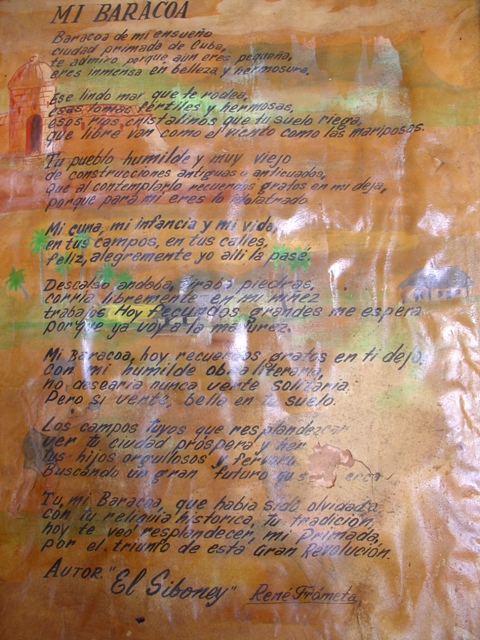 MI BARACOA
Baracoa de mi ensueño
ciudad primada de Cuba,
te admiro porque aun eres pequeña,
eres inmensa en belleza y hermosura.
Ese lindo mar que te rodea,
esas lomas fertiles y hermosas,
esos rios cristalinos que tu suelo riega,
que libre van como el viento como las mariposas.
Tu pueblo humilde y muy viejo
de construcciones antiguas o anticuadas,
que al contemplarlo recuerdos gratos en mi deja,
porque para mi eres lo idolatrado
Mi cuna, mi infancia y mi vida,
en tus campos, en tus calles,
feliz, alegremente yo alli la pasé.
Descalso andaba, tiraba piedras,
corria libremente en mi niñez
trabajos Hoy fecundos grandes me espera
porque ya voy a la madurez.
Mi Baracoa, hoy recuerdos gratos en ti dejo,
con mi humilde obra literaria,
no desearia nunca verte solitaria.
Pero si verte, bello en tu suelo.
Los campos tuyos que resplandezcar
ver tu ciudad próspera y her
Tus hijos orgullosos y fervoro
Buscando un gran futuro qu
Tu, mi Baracoa, que habia sido olvidada
con tu reliquia historica, tu tradición,
hoy te veo resplandecer, mi Primada,
por el triunfo de esta Gran Revolución.
AUTOR. "El Siboney" René Frómeta